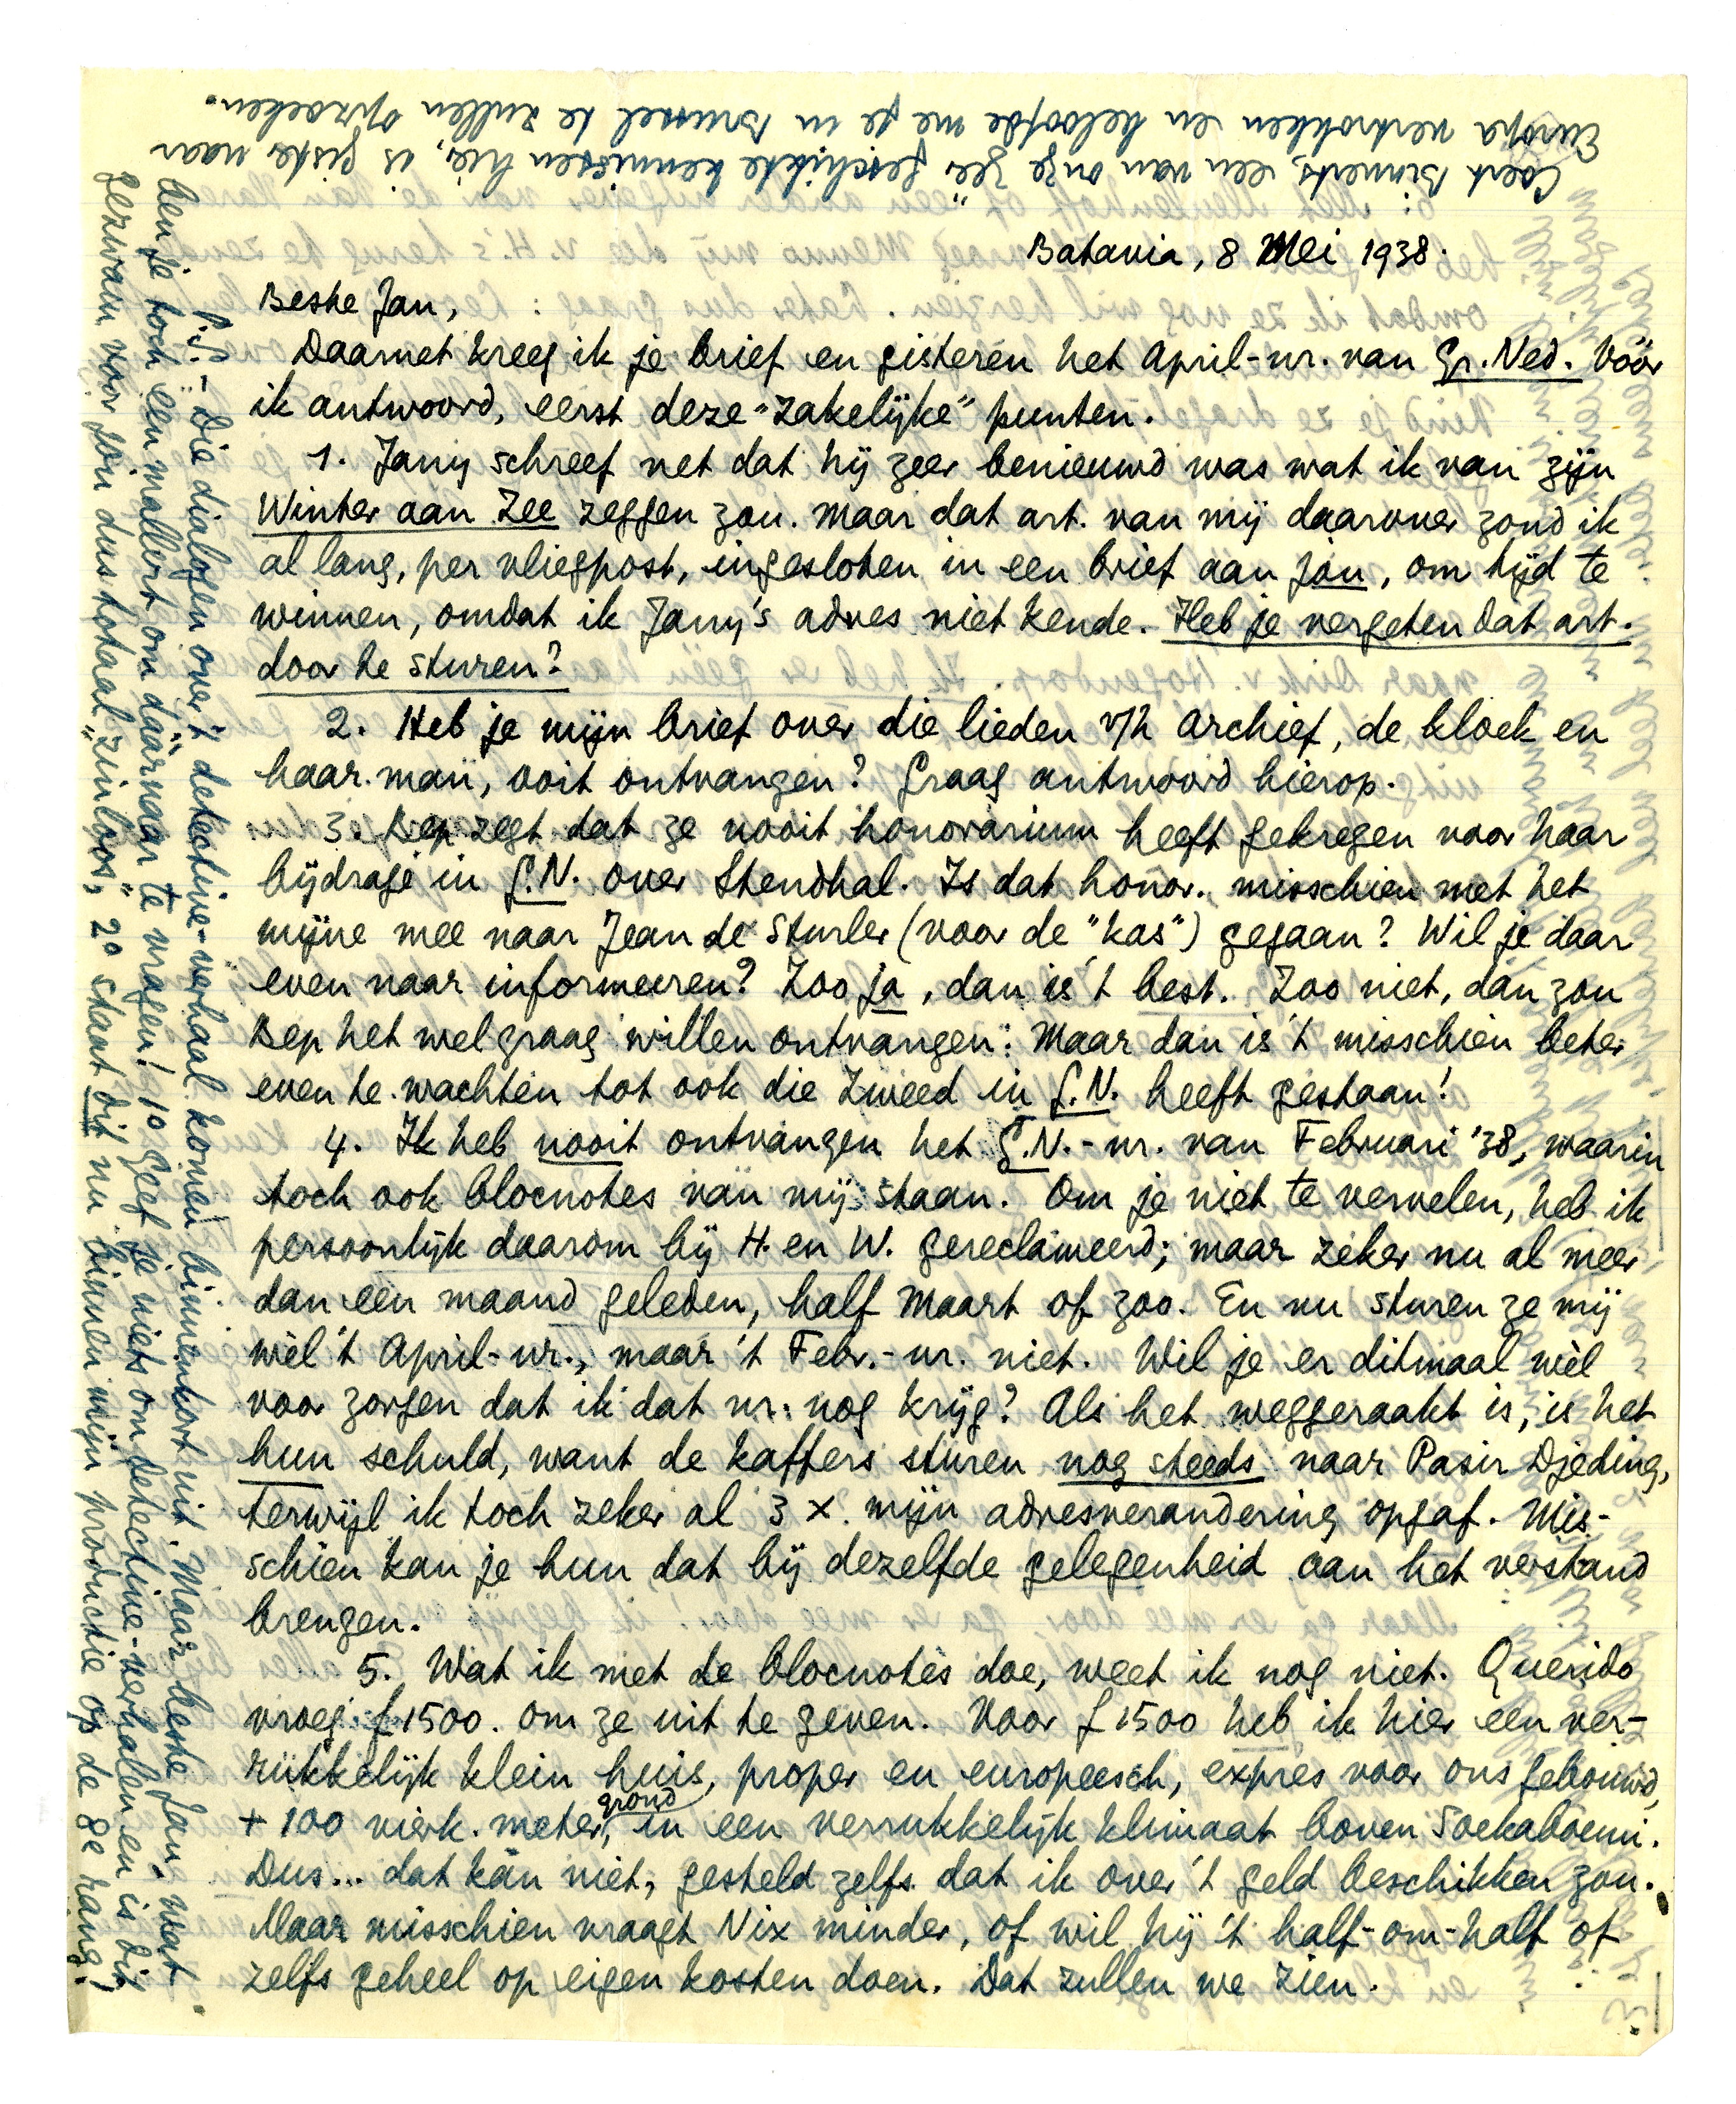 Batavia, 8 Mei 1938.
Beste Jan,
Daarnet kreeg ik je brief en gisteren het April-nr. van Gr. Ned. Vóór
ik antwoord, eerst deze "zakelijke" punten.
1. Jany schreef net dat hij zeer benieuwd was wat ik van zijn
Winter aan Zee zeggen zou. Maar dat art. van mij daarover zond ik
al lang, per vliegpost, ingesloten in een brief aan jóu, om tijd te
winnen, omdat ik Jany's adres niet kende. Heb je vergeten dat art.
door te sturen?
2. Heb je mijn brief over die lieden v/h Archief, de kloek en
haar man, ooit ontvangen? Graag antwoord hierop.
3. Bep zegt dat ze nooit honorarium heeft gekregen voor haar
bijdrage in G.N. over Stendhal. Is dat honor. misschien met het
mijne mee naar Jean de Sturler (voor de "kas") gegaan? Wil je daar
even naar informeeren? Zoo ja, dan is 't best. Zoo niet, dan zou
Bep het wel graag willen ontvangen. Maar dan is 't misschien beter
even te wachten tot ook die Zweed in G.N. heeft gestaan!
4. Ik heb nooit ontvangen het G.N.-nr. van Februari '38, waarin
toch ook blocnotes van mij staan. Om je niet te vervelen, heb ik
persoonlijk daarom bij H. en W. gereclameerd; maar zeker nu al meer
dan één maand geleden, half Maart of zoo. En nu sturen ze mij
wèl 't April-nr., maar 't Febr.-nr. niet. Wil je er ditmaal wèl
voor zorgen dat ik dat nr. nog krijg? Als het weggeraakt is, is het
hun schuld, want de kaffers sturen nog steeds naar Pasir Djeding,
terwijl ik toch zeker al 3 x mijn adresverandering opgaf. Mis-
schien kan je hun dat bij dezelfde gelegenheid aan het verstand
brengen.
5. Wat ik met de blocnotes doe, weet ik nog niet. Querido
vroeg f 1500. om ze uit te geven. Voor f 1500 heb ik hier een ver-
rukkelijk klein huis, proper en europeesch, expres voor ons gebouwd,
+ 100 vierk. meter grond, in een verrukkelijk klimaat boven Soekaboemi.
Dus... dat kán niet, gesteld zelfs dat ik over 't geld beschikken zou.
Maar misschien vraagt Nix minder, of wil hij 't half-om-half of
zelfs geheel op eigen kosten doen. Dat zullen we zien.
P.S. - Die dialogen over 't detective-verhaal komen binnenkort uit. Maar beste Jan, wat
ben je toch een mallert om dáárnaar te vragen! 1º geef je niets om detective-verhalen en is dit
gezwam voor jóu dus totaal "zinloos", 2º staat dit nu binnen mijn productie op de 8e rang!
Coert Binnerts, een van onze zéér geschikte kennissen hier, is gister naar
Europa vertrokken en beloofde me je in Brussel te zullen opzoeken.